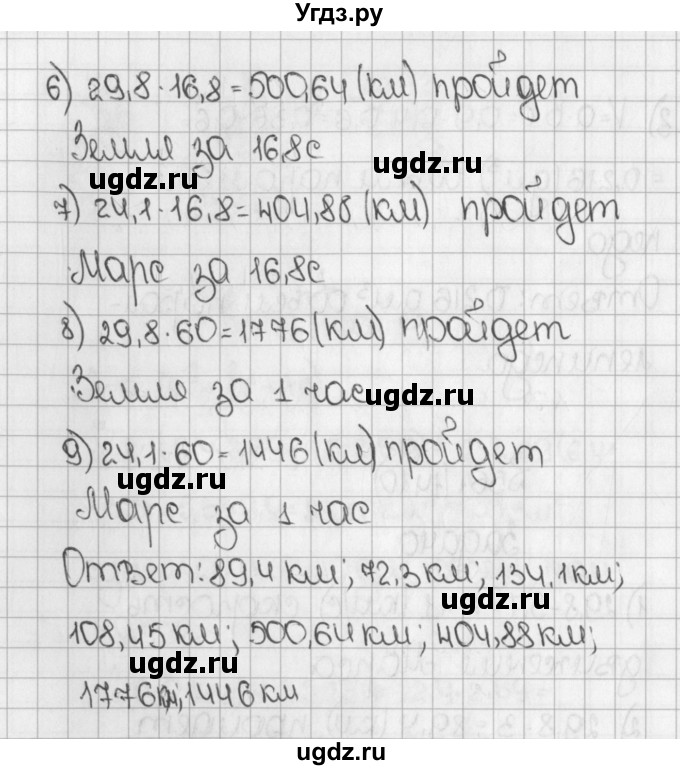 Угдз.ру
6) 29,8·16,8=500,64(км) пройдет
Земля за 16,8с
ugdz.ru
ugdz.ru
7) 24,1·16,8=404,88(км) пройдет
Марс за 16,8с
8) 29,8·60=1776(км) пройдет
Земля за 1 час
ugdz.ru
9) 24,1·60=1446(км) пройдет
ugdz.ru
Марс за 1 час
Ответ: 89,4 км; 72,3км; 134,1км;
ugdz.ru
108,45км; 500,64км; 404,88км;
ugdz.ru
1776км, 1446км
ugdz.ru